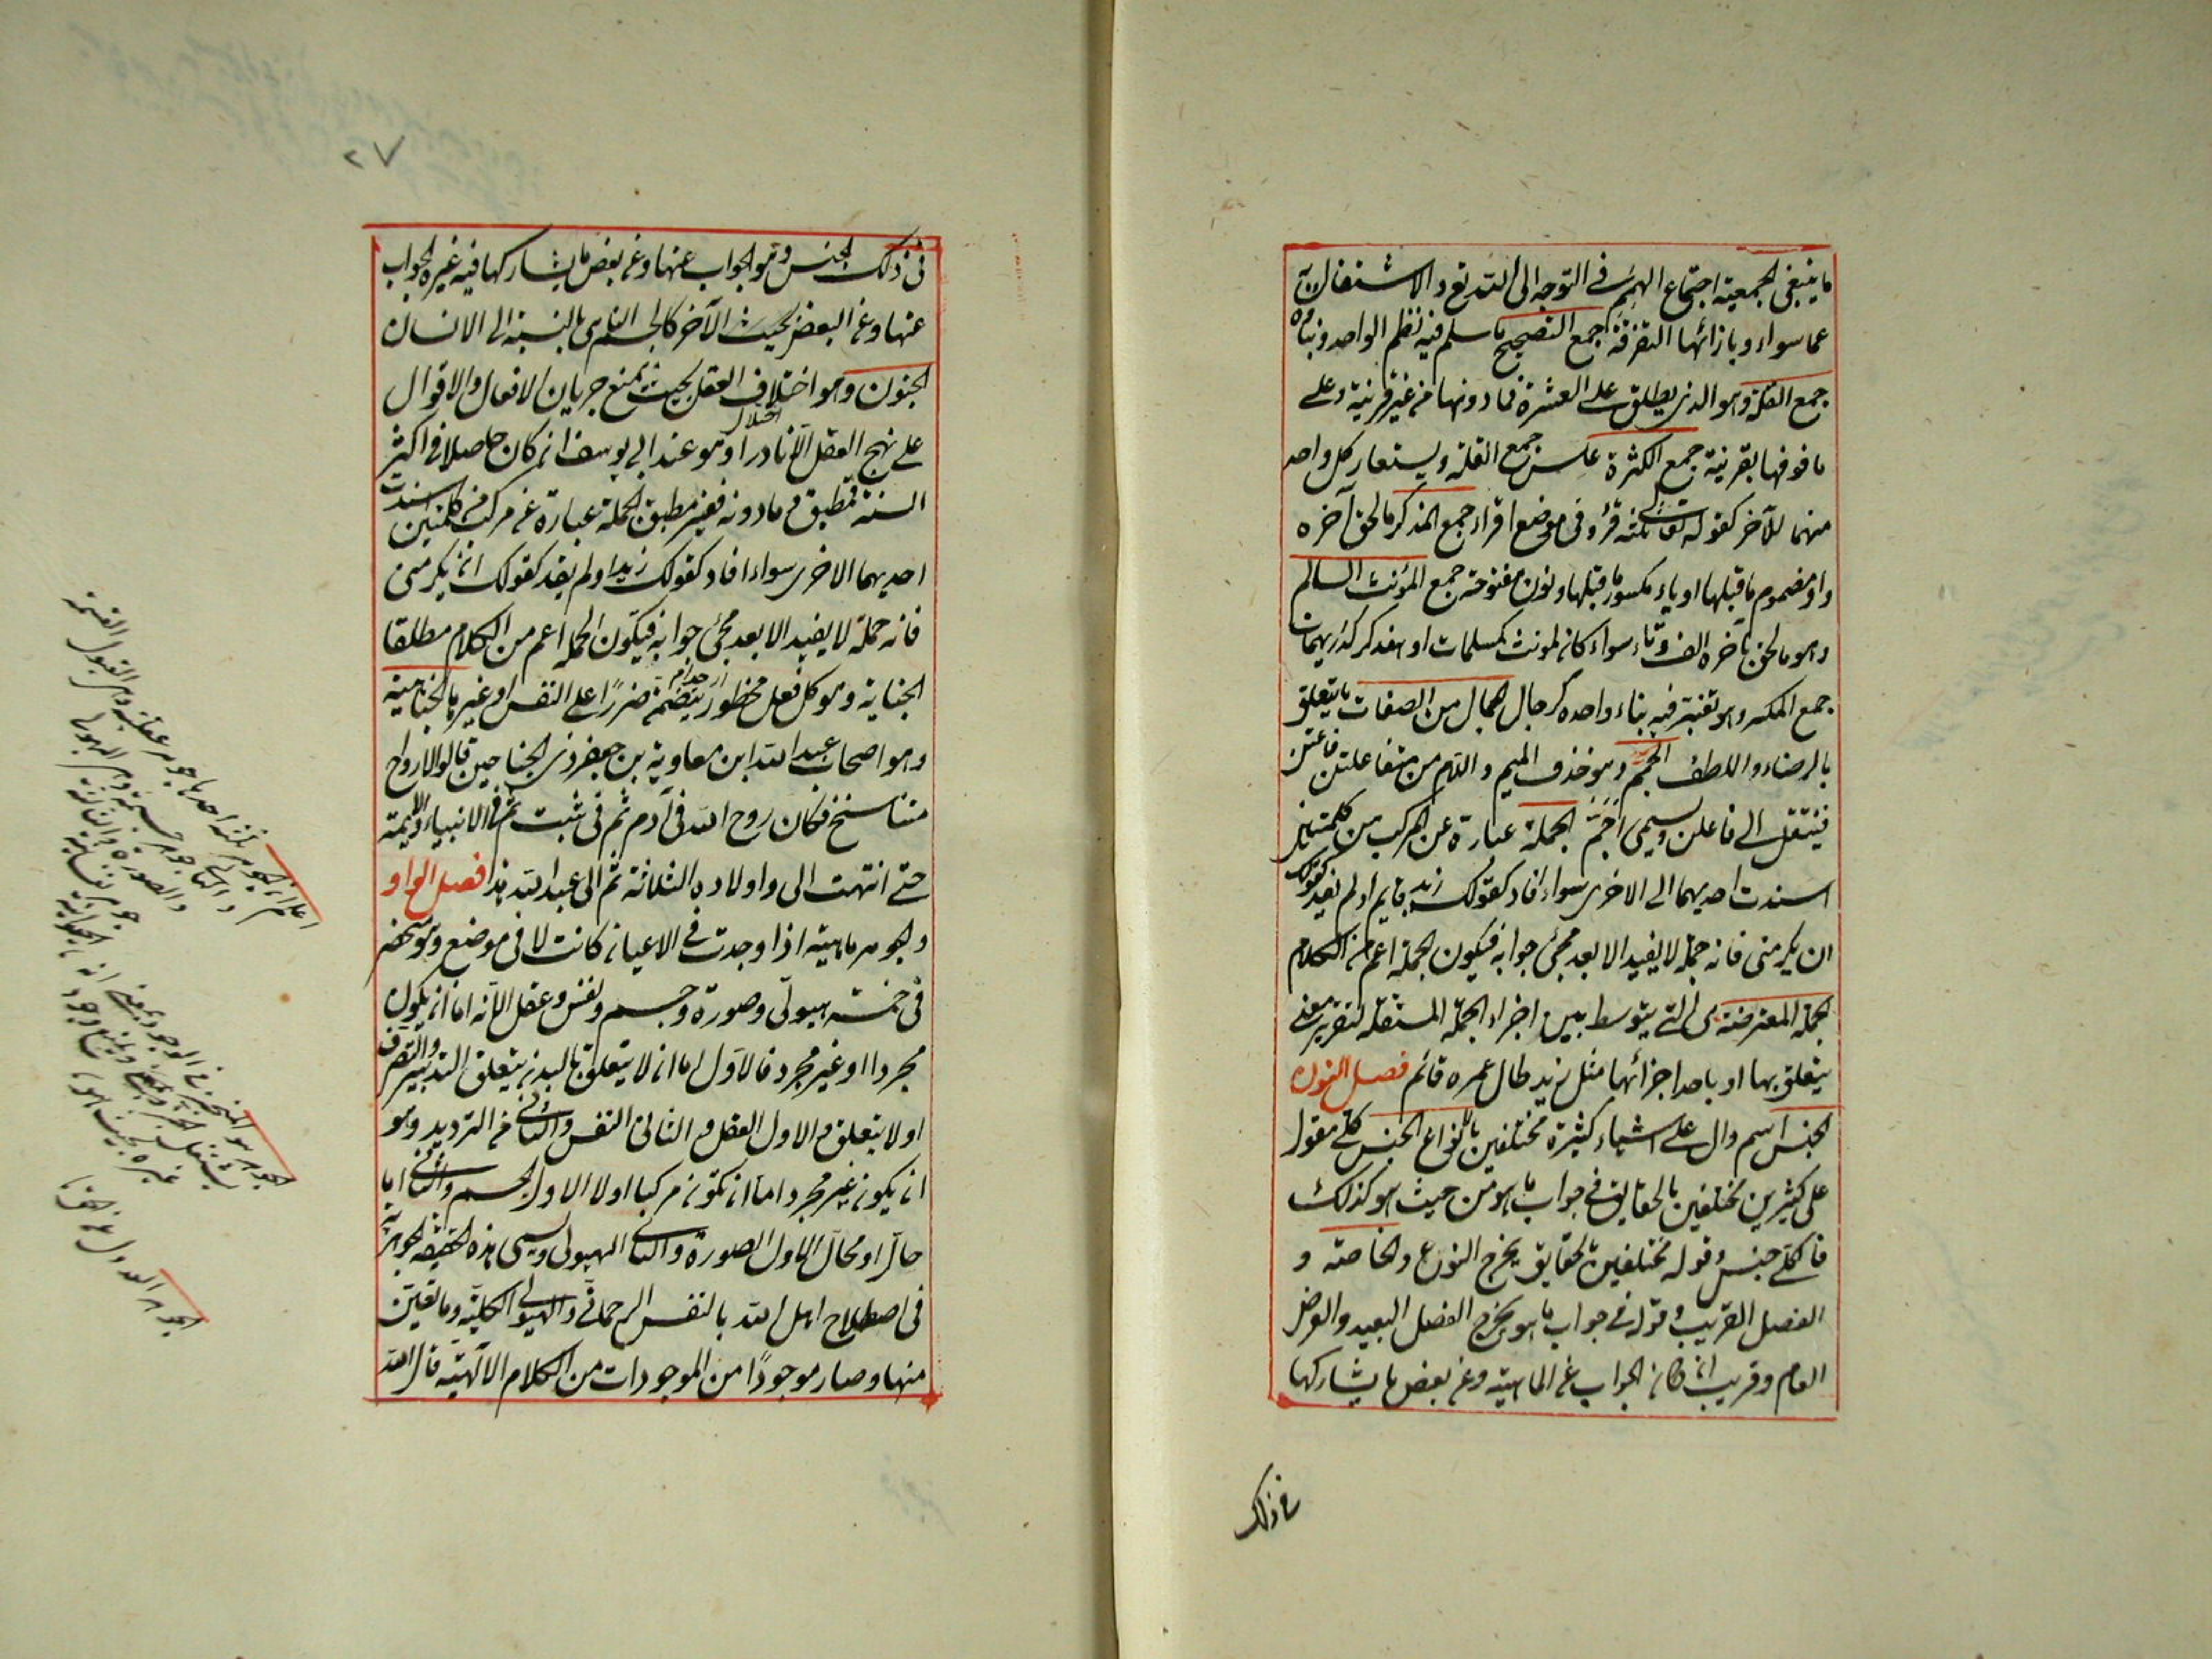 ما ينبغى الجمعية اجتماع الهمم فى التوجه الى الله تع والاشتغال به
عما سواه وبازائها التفرقة جمع التصحيح ما سلم فيه نظم الواحد وبناؤه
جمع القلة وهو الذى يطلق على العشرة فما دونها من غير قرينة وعلى
ما فوقها بقرينة جمع الكثرة عكس جمع القلة ويستعار كل واحد
منهما للآخر كقوله تعالى ثلثة قرؤ فى موضع اقراء جمع المذكر ما لحق آخره
واو مضموم ما قبلها او ياء مكسور ما قبلها ونون مفتوحة جمع المؤنث السالم
وهو ما لحق بآخره الف وتاء سواء كان لمونث كمسلمات او مذكر كدريهمات
جمع المكسر وهو تغير فيه بناء واحده كرجال الجمال من الصفات ما يتعلق
بالرضاء واللطف الجمم وهو حذف الميم واللام من مفاعلتن فاعتن
فينتقل الى فاعلن ويسمى اجم الجملة عبارة عن المركب من كلمتين
اسندت احديهما الى الاخرى سواء افاد كقولك زيد قايم او لم يفد كقولك
ان يكرمنى فانه جملة لا يفيد الا بعد مجئ جوابه فيكون الجملة اعم من الكلام
الجملة المعترضة هى التى يتوسط بين اجزاء الجملة المستقلة لتقرير معنى
يتعلق بها او باحد اجزائها مثل زيد طال عمره قائم فصل النون
الجنس اسم دال على اشياء كثيرة مختلفين بالانواع الجنس كلى مقول
على كثيرين مختلفين بالحقايق فى جواب ما هو من حيث هو كذلك
فالكلى جنس وقوله مختلفين بالحقايق يخرج النوع والخاصة و
الفصل القريب وقوله فى جواب ما هو يخرج الفصل البعيد والعرض
العام وقريب ان كان الجواب عن الماهية وعن بعض ما يشاركها
فى ذلك
٢٧
فى ذلك الجنس وهو الجواب عنها وعن بعض ما يشاركها فيه غير الجواب
عنها وعن البعض بحيث الآخر كالجسم النامى بالنسبة الى الانسان
الجنون وهو اختلاف العقل بحيث يمنع جريان الافعال والاقوال
اختلال
على نهج العقل الا نادرا وهو عند ابى يوسف ان كان حاصلا فى اكثر
السنة فمطبق وما دونه فغير مطبق الجملة عبارة عن مركب من كلمتين اسندت
احديهما الاخرى سواء افاد كقولك زيد او لم يفد كقولك ان يكرمنى
فانه جملة لا يفيد الا بعد مجئ جوابه فيكون الجملة اعم من الكلام مطلقا
اى حرام
الجناية وهو كل فعل محظور يتضمن ضررًا على النفس او غيرها الجناحية
وهو اصحاب عبد الله ابن معاوية بن جعفر ذى الجناحين قالوا الارواح
متناسخ فكان روح الله فى آدم ثم فى شيث ثم فى الانبياء والائمة
حتى انتهت الى واولاده الثلاثة ثم الى عبد الله هذا فصل الواو
والجوهر ماهية اذا وجدت فى الاعيان كانت لا فى موضع وهو منحصر
فى خمسة هيولى وصورة وجسم ونفس وعقل لانه اما ان يكون
مجردا او غير مجرد فالاول اما ان لا يتعلق بالبدن يتعلق التدبير والتصرف
او لا يتعلق والاول العقل والثانى النفس والثانى من الترديد وهو
ان يكون غير مجرد اما ان تكون مركبا اولا الاول الجسم والثانى اما
حالّ او محال الاول الصورة والثانى الهيولى ويسمى هذه الحقيقة الجوهرية
فى اصطلاح اهل الله بالنفس الرحمانى والهيولى الكلية وما تعين
منها وصار موجودًا من الموجودات من الكلام الآلهية قال الله